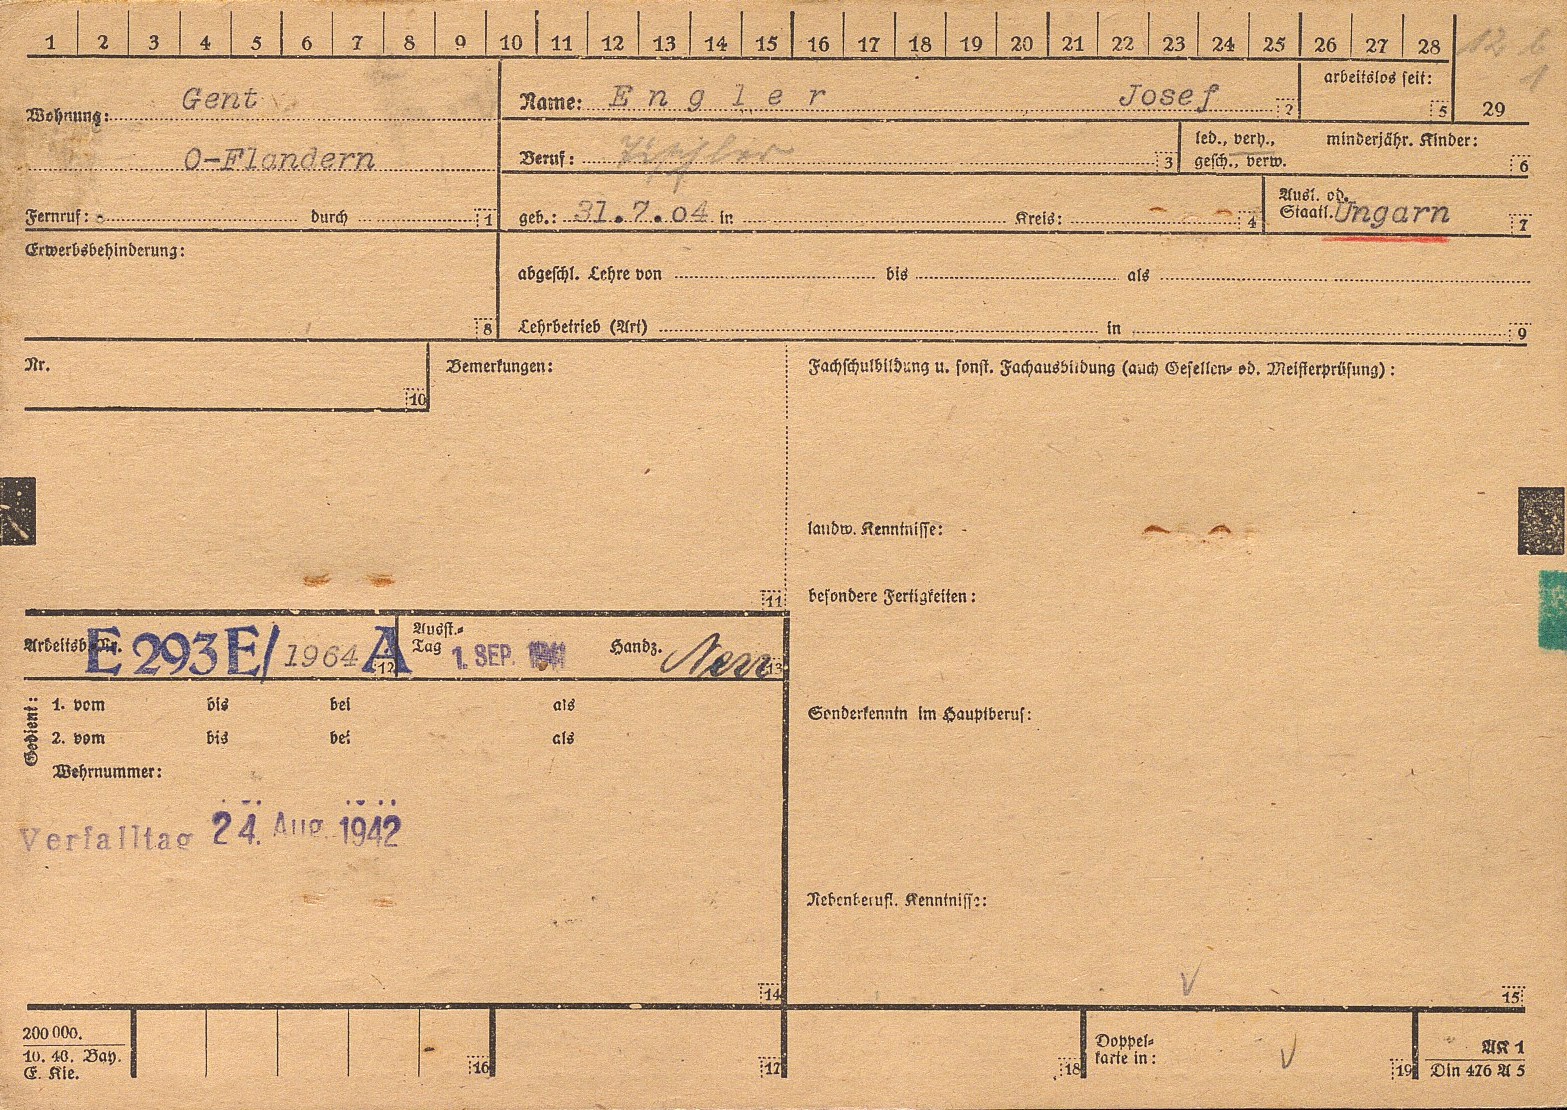 1 2 3 4 5 6 7 8 9 10 11 12 13 14 15 16 17 18 19 20 21 22 23 24 25 26 27 28 12 6
1
29
Wohnung: Gent
O-Flandern
Fernruf: durch 1
Name: Engler Josef 2
arbeitslos seit: 5
Beruf: Tischler 3
led., verh., minderjähr. Kinder:
gesch., verw. 6
geb.: 31.7.04 in Kreis: 4
Ausl. od.
Staatl. Ungarn 7
Erwerbsbehinderung: 8
abgeschl. Lehre von bis als
Lehrbetrieb (Art) in 9
Nr. 10
Bemerkungen: 11
Fachschulbildung u. sonst. Fachausbildung (auch Gesellen- od. Meisterprüfung):
landw. Kenntnisse:
besondere Fertigkeiten:
Sonderkenntn im Hauptberuf:
Nebenberufl. Kenntnisse:
15
Arbeitsb. Nr. E 293 E/ 1964 A 12
Ausst.-
Tag 1. SEP. 1941 Handz. 13
Gedient:
1. vom bis bei als
2. vom bis bei als
Wehrnummer:
Verfalltag 24. Aug. 1942
14
200 000.
10. 40. Bay.
E. Kie.
16 17 18
Doppel-
karte in: 19
AK 1
Din 476 A 5